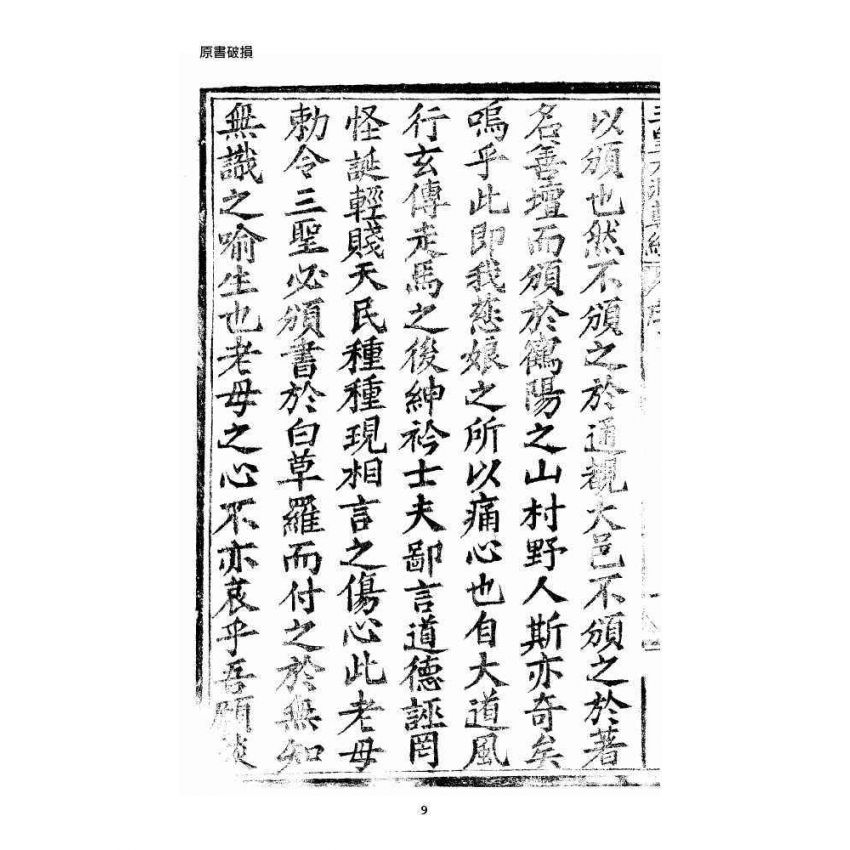 原書破損
以頒也然不頒之於通觀大邑不頒之於著
名善壇而頒於鶴陽之山村野人斯亦奇矣
嗚乎此即我慈娘之所以痛心也自大道風
行玄傳走馬之後紳衿士夫鄙言道德誣罔
怪誕輕賤天民種種現相言之傷心此老母
勅令三聖必頒書於白草羅而付之於無知
無識之喻生也老母之心不亦哀乎吾願
9